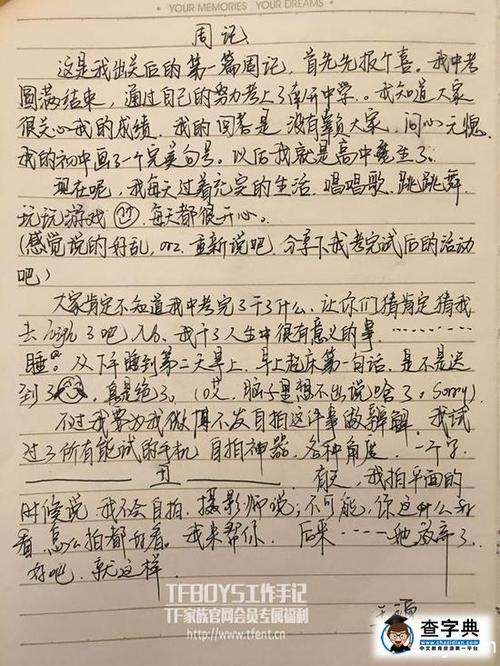 YOUR MEMORIES YOUR DREAMS
周记
这是我出关后的第一篇周记,首先先报个喜。我中考
圆满结束,通过自己的努力考上了南开中学。我知道大家
很关心我的成绩,我的回答是没有辜负大家,问心无愧
我的初中画了一个完美句号。以后我就是高中生了。
现在呢,我每天过着充实的生活.唱唱歌.跳跳舞
玩玩游戏 每天都很开心。
(感觉说的好乱,orz.重新说吧.分享下我考完试后的活动
吧)
大家肯定不知道我中考完了干了什么.让你们猜肯定猜我
去 了吧 NO.我干了人生中很有意义的事.………
睡.从下午睡到第二天早上.早上起床第一句话.是不是迟
到了 真是绝了。(哎,脑子里想不出说啥了.Sorry)
不过我要为我微博不发自拍这件事做辩解.我试
过了所有能试的手机 自拍神器.各种角度.一个字.
丑 有天,我拍平面的
时候说 我不会自拍.摄影师说:不可能,你这么好
看 怎么拍都好看。我来帮你. 后来……她放弃了.
好吧.就这样.
TFBOYS工作手记
TF家族官网会员专属福利
www.tfent.cn
王源
查字典
www.chazidian.com
中文教育资源第一平台